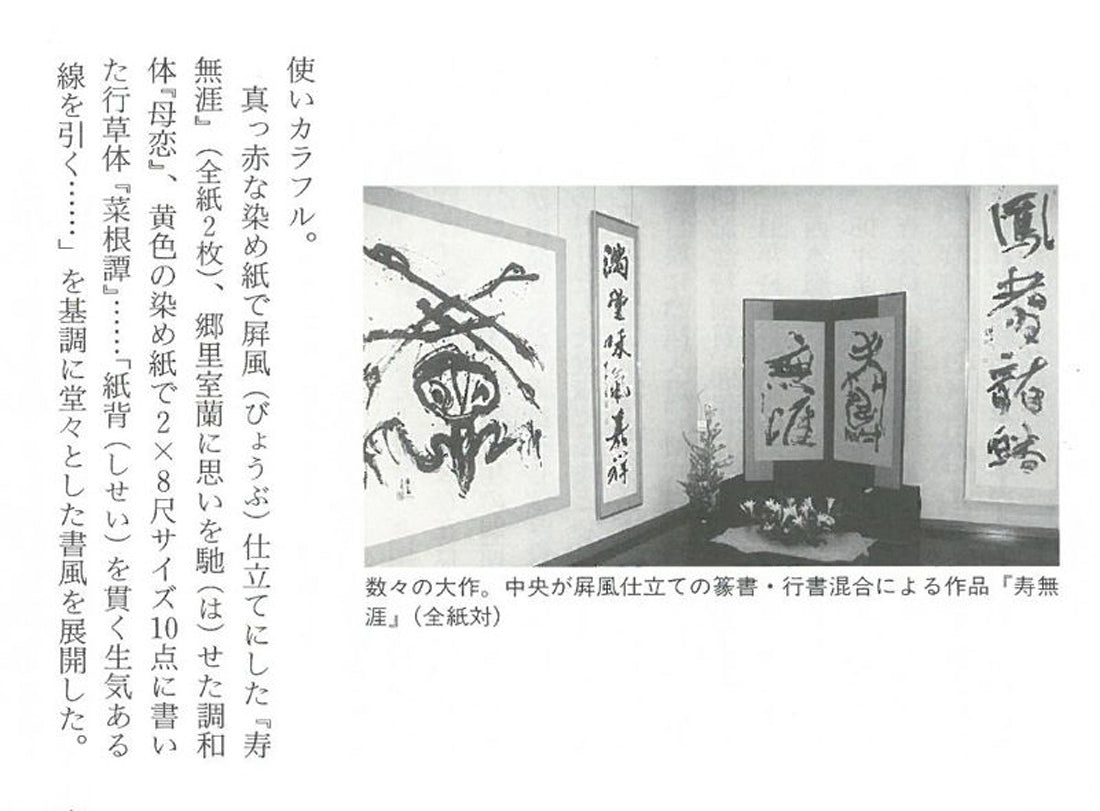 鳳翥龍蟠
無涯
数々の大作。中央が屛風仕立ての篆書・行書混合による作品『寿無
涯』（全紙対）
使いカラフル。
真っ赤な染め紙で屛風（びょうぶ）仕立てにした『寿
無涯』（全紙２枚）、郷里室蘭に思いを馳（は）せた調和
体『母恋』、黄色の染め紙で２×８尺サイズ10点に書い
た行草体『菜根譚』……「紙背（しせい）を貫く生気ある
線を引く……」を基調に堂々とした書風を展開した。